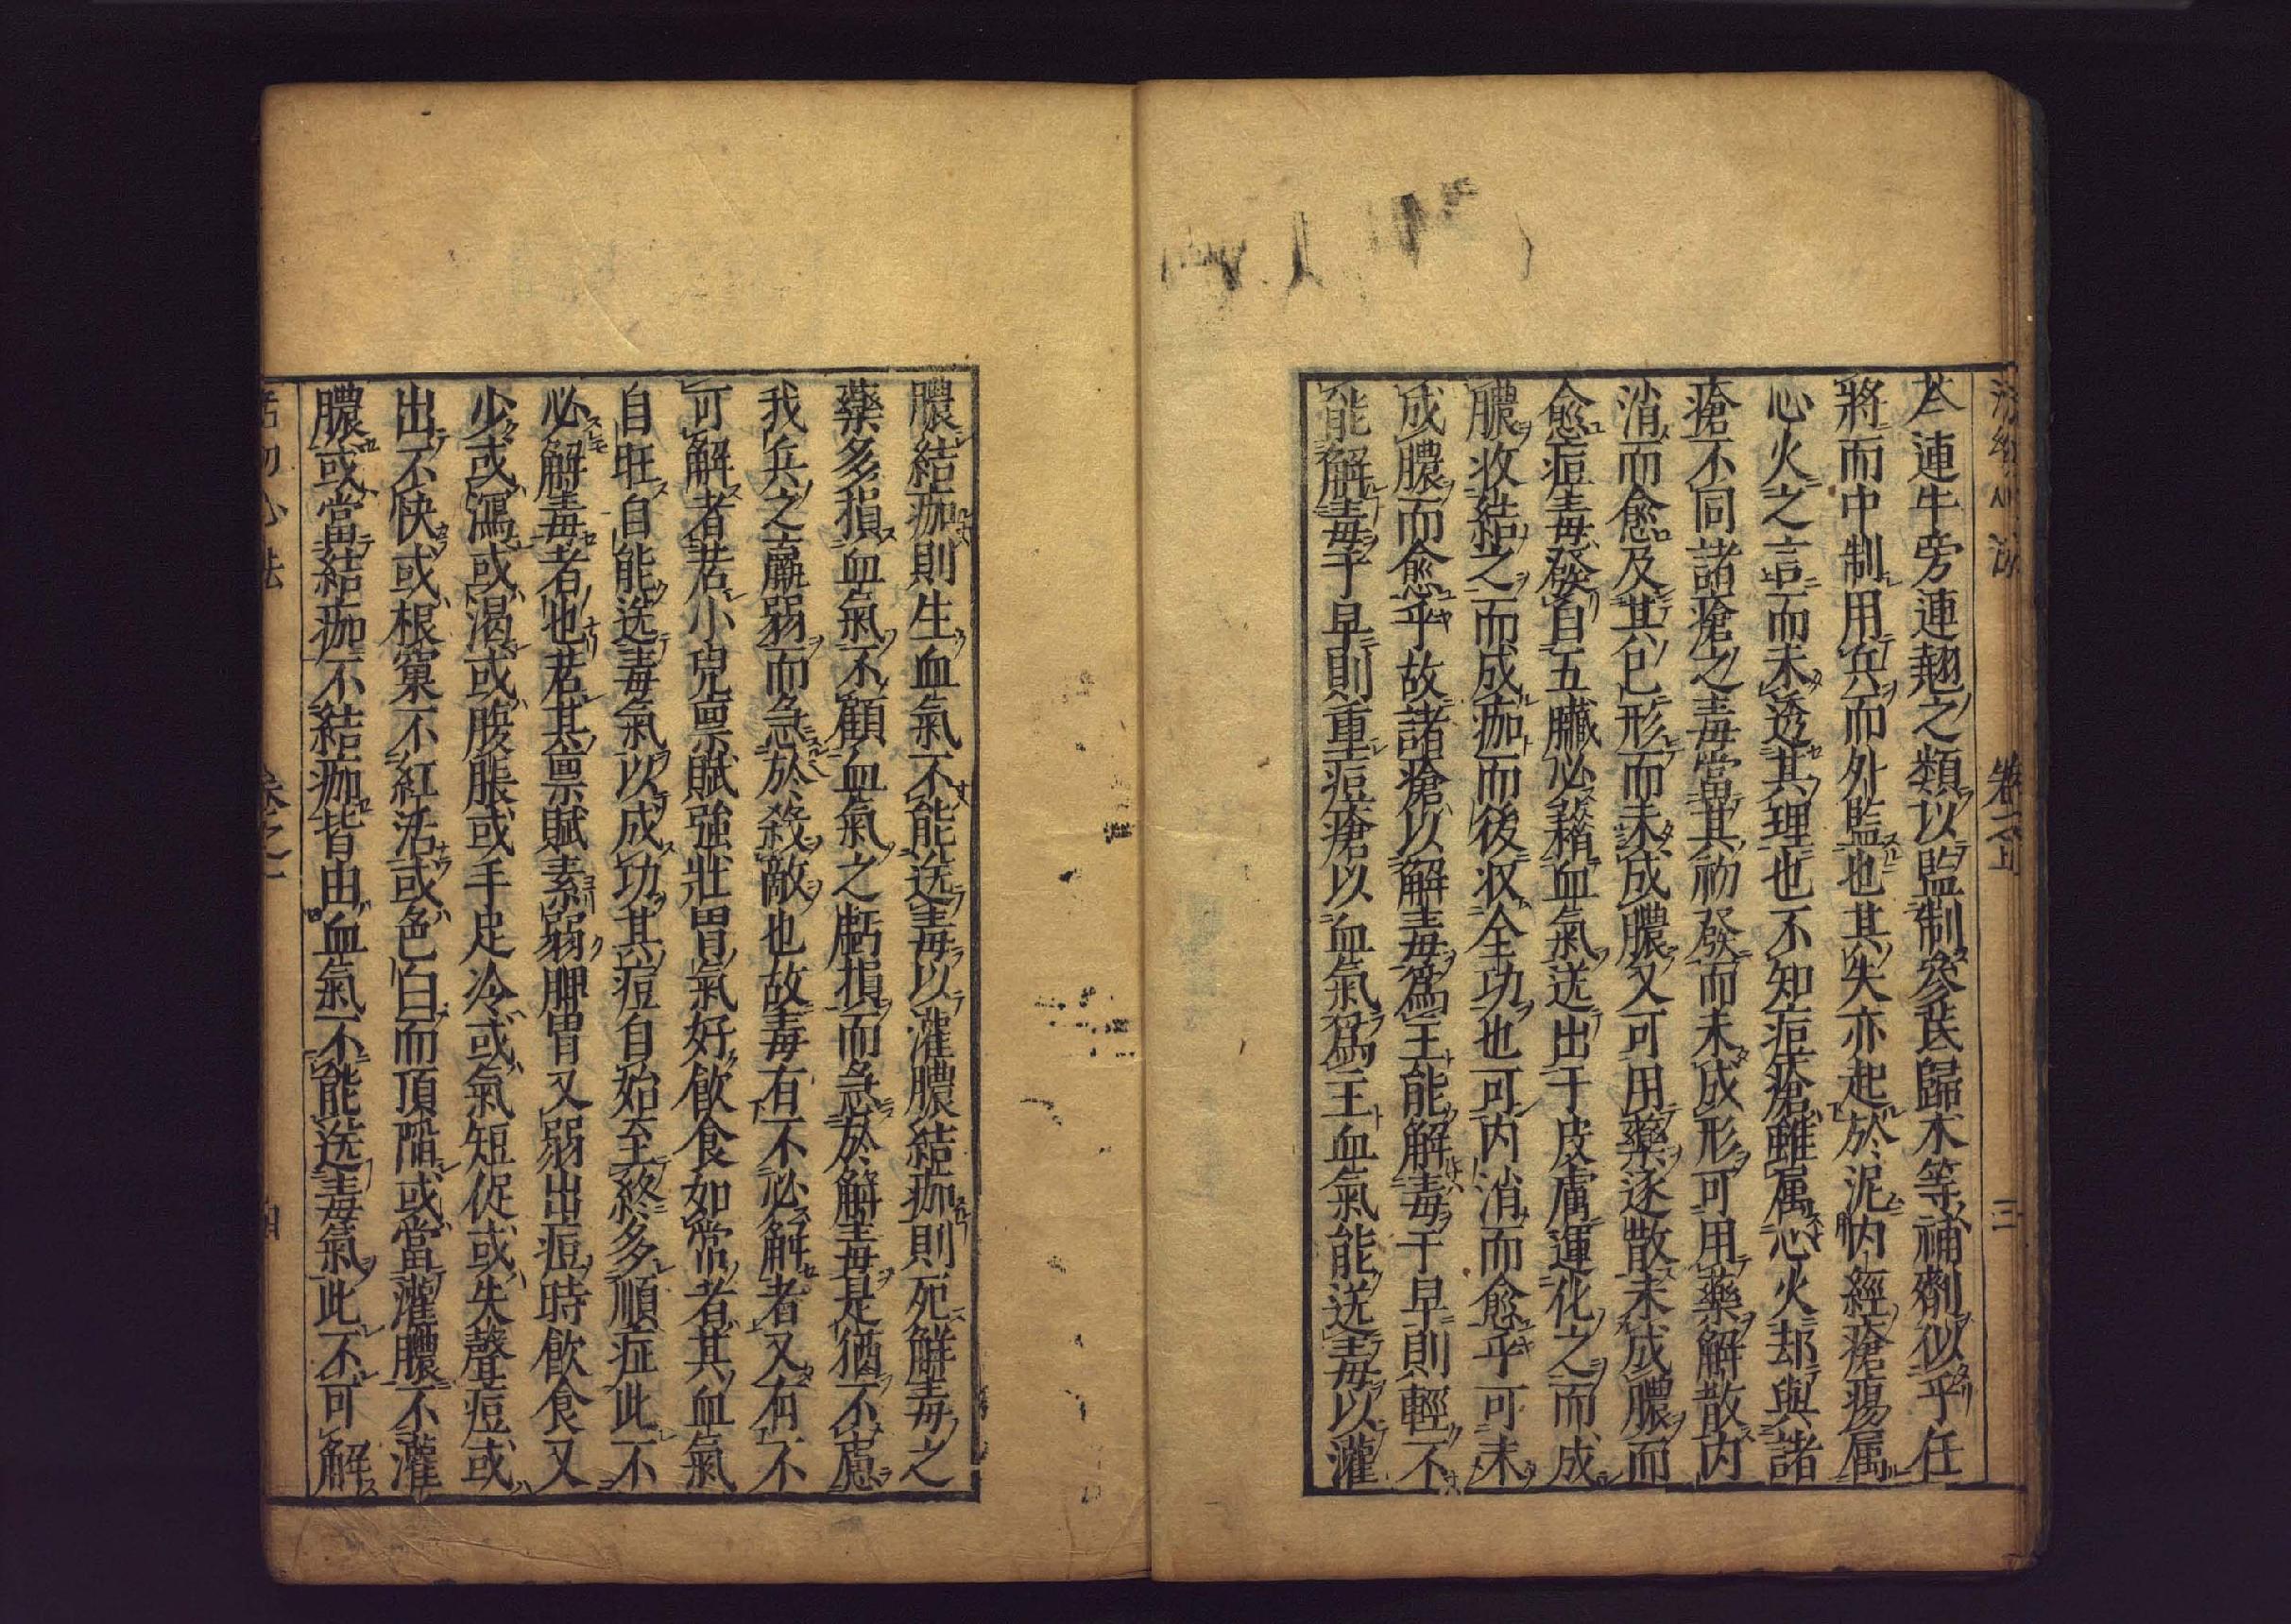 活幼心法　卷之一　三
苓連牛旁連翹之類以監制參芪歸朮等補劑似乎任
將而中制用兵而外監也其失亦起於泥內經瘡瘍屬
心火之言而未透其理也不知痘瘡雖属心火却與諸
瘡不同諸瘡之毒當其初發而未成形可用藥解散内
消而愈及其已形而未成膿又可用藥逐散未成膿而
愈痘毒發自五臟必藉血氣送出于皮膚運化之而成
膿收結之而成痂而後収全功也可内消而愈乎可未
成膿而愈乎故諸瘡以解毒爲主能解毒于早則輕不
能解毒于早則重痘瘡以血氣爲主血氣能送毒以灌
膿結痂則生血氣不能送毒以灌膿結痂則死解毒之
藥多損血氣不顧血氣之虧損而急於解毒是猶不慮
我兵之羸弱而急於殺敵也故毒有不必解者又有不
可解者若小兒禀賦強壯胃氣好飲食如常者其血氣
自旺自能送毒氣以成功其痘自始至終多順症此不
必解毒者也若其禀賦素弱脾胃又弱出痘時飲食又
少或瀉或渴或腹脹或手足冷或氣短促或失聲痘或
出不快或根窠不紅活或色白而頂陷或當灌膿不灌
膿或當結痂不結痂皆由血氣不能送毒氣此不可解
活幼心法　卷之一　四